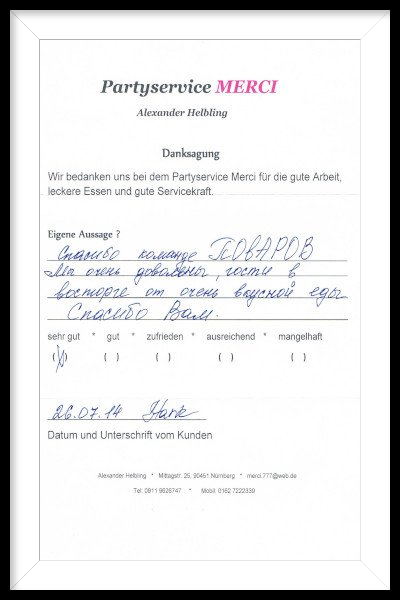 Partyservice MERCI
Alexander Helbling
Danksagung
Wir bedanken uns bei dem Partyservice Merci für die gute Arbeit,
leckere Essen und gute Servicekraft.
Eigene Aussage ?
Спасибо команде ПОВАРОВ
Мы очень довольны, гости в
восторге от очень вкусной еды
Спасибо Вам.
sehr gut * gut * zufrieden * ausreichend * mangelhaft
(X) ( ) ( ) ( ) ( )
26.07.14
Datum und Unterschrift vom Kunden
Alexander Helbling * Mittagstr. 25, 90451 Nürnberg * merci.777@web.de
Tel: 0911 9626747 * Mobil: 0162 7222839